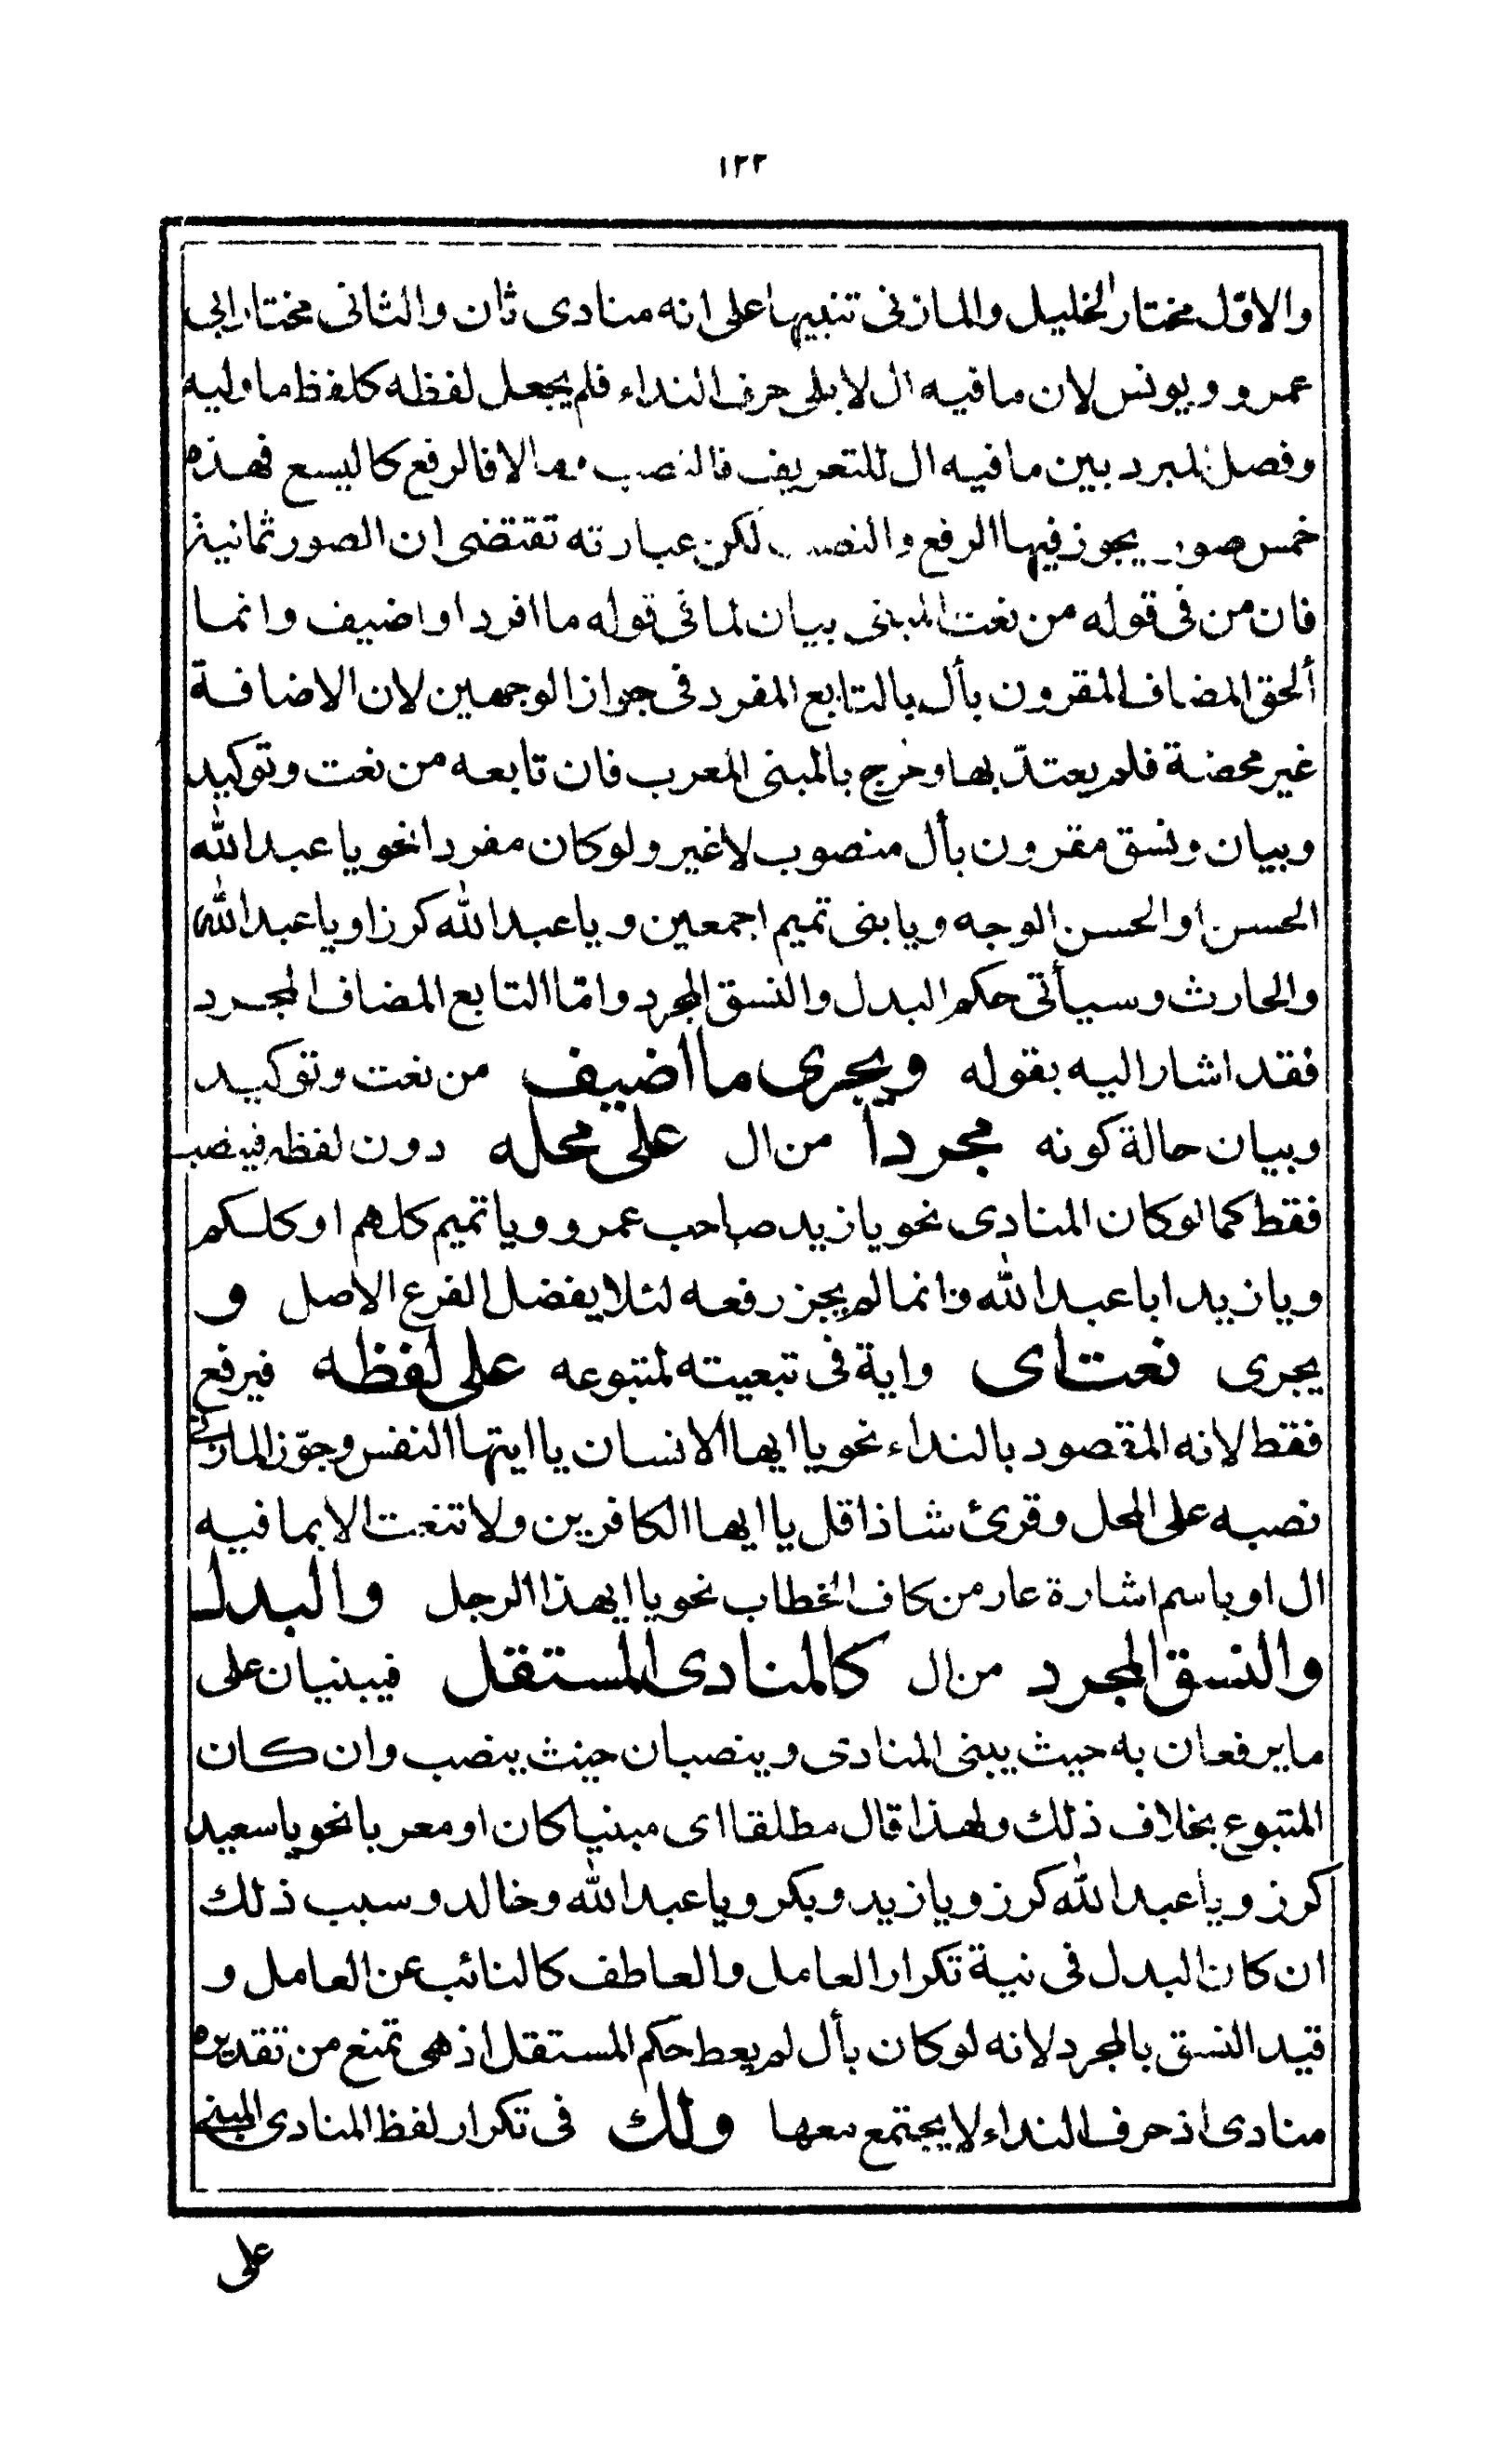 ١٢٢
والاوّل مختار الخليل والمازنى تنبيها على انه منادى ثان والثانى مختار ابى
عمرو ويونس لان ما فيه ال لا يلى حرف النداء فلم يجعل لفظه كلفظ ما وليه
وفصل المبرد بين ما فيه ال للتعريف فالنصب والا فالرفع كاليسع فهذه
خمس صور يجوز فيها الرفع والنصب لكن عبارته تقتضى ان الصور ثمانية
فان من فى قوله من نعت المبنى بيان لما فى قوله ما افرد او اضيف وانما
ألحق المضاف المقرون بأل بالتابع المفرد فى جواز الوجهين لان الاضافة
غير محضة فلم يعتدّ بها وخرج بالمبنى المعرب فان تابعه من نعت وتوكيد
وبيان ونسق مقرون بأل منصوب لا غير ولو كان مفردا نحو يا عبد الله
الحسن او الحسن الوجه ويا بنى تميم اجمعين ويا عبد الله كرزا ويا عبد الله
والحارث وسيأتى حكم البدل والنسق المجرد وامّا التابع المضاف المجرد
فقد اشار اليه بقوله ويجرى ما اضيف من نعت وتوكيد
وبيان حالة كونه مجردا من ال على محله دون لفظه فينصب
فقط كما لو كان المنادى نحو يا زيد صاحب عمرو ويا تميم كلهم او كلكم
ويا زيد ابا عبد الله وانما لم يجز رفعه لئلا يفضل الفرع الاصل و
يجرى نعت اى واية فى تبعيته لمتبوعه على لفظه فيرفع
فقط لانه المقصود بالنداء نحو يا ايها الانسان يا ايتها النفس وجوّز المازنى
نصبه على المحل وقرئ شاذا قل يا ايها الكافرين ولا تنعت الا بما فيه
ال او باسم اشارة عار من كاف الخطاب نحو يا ايهذا الرجل والبدل
والنسق المجرد من ال كالمنادى المستقل فيبنيان على
ما يرفعان به حيث يبنى المنادى وينصبان حيث ينصب وان كان
المتبوع بخلاف ذلك ولهذا قال مطلقا اى مبنيا كان او معربا نحو يا سعيد
كرز ويا عبد الله كرز ويا زيد وبكر ويا عبد الله وخالد وسبب ذلك
ان كان البدل فى نية تكرار العامل والعاطف كالنائب عن العامل و
قيد النسق بالمجرد لانه لو كان بأل لم يعط حكم المستقل اذ هى تمنع من تقديره
منادى اذ حرف النداء لا يجتمع معها ولك فى تكرار لفظ المنادى المبنى
على